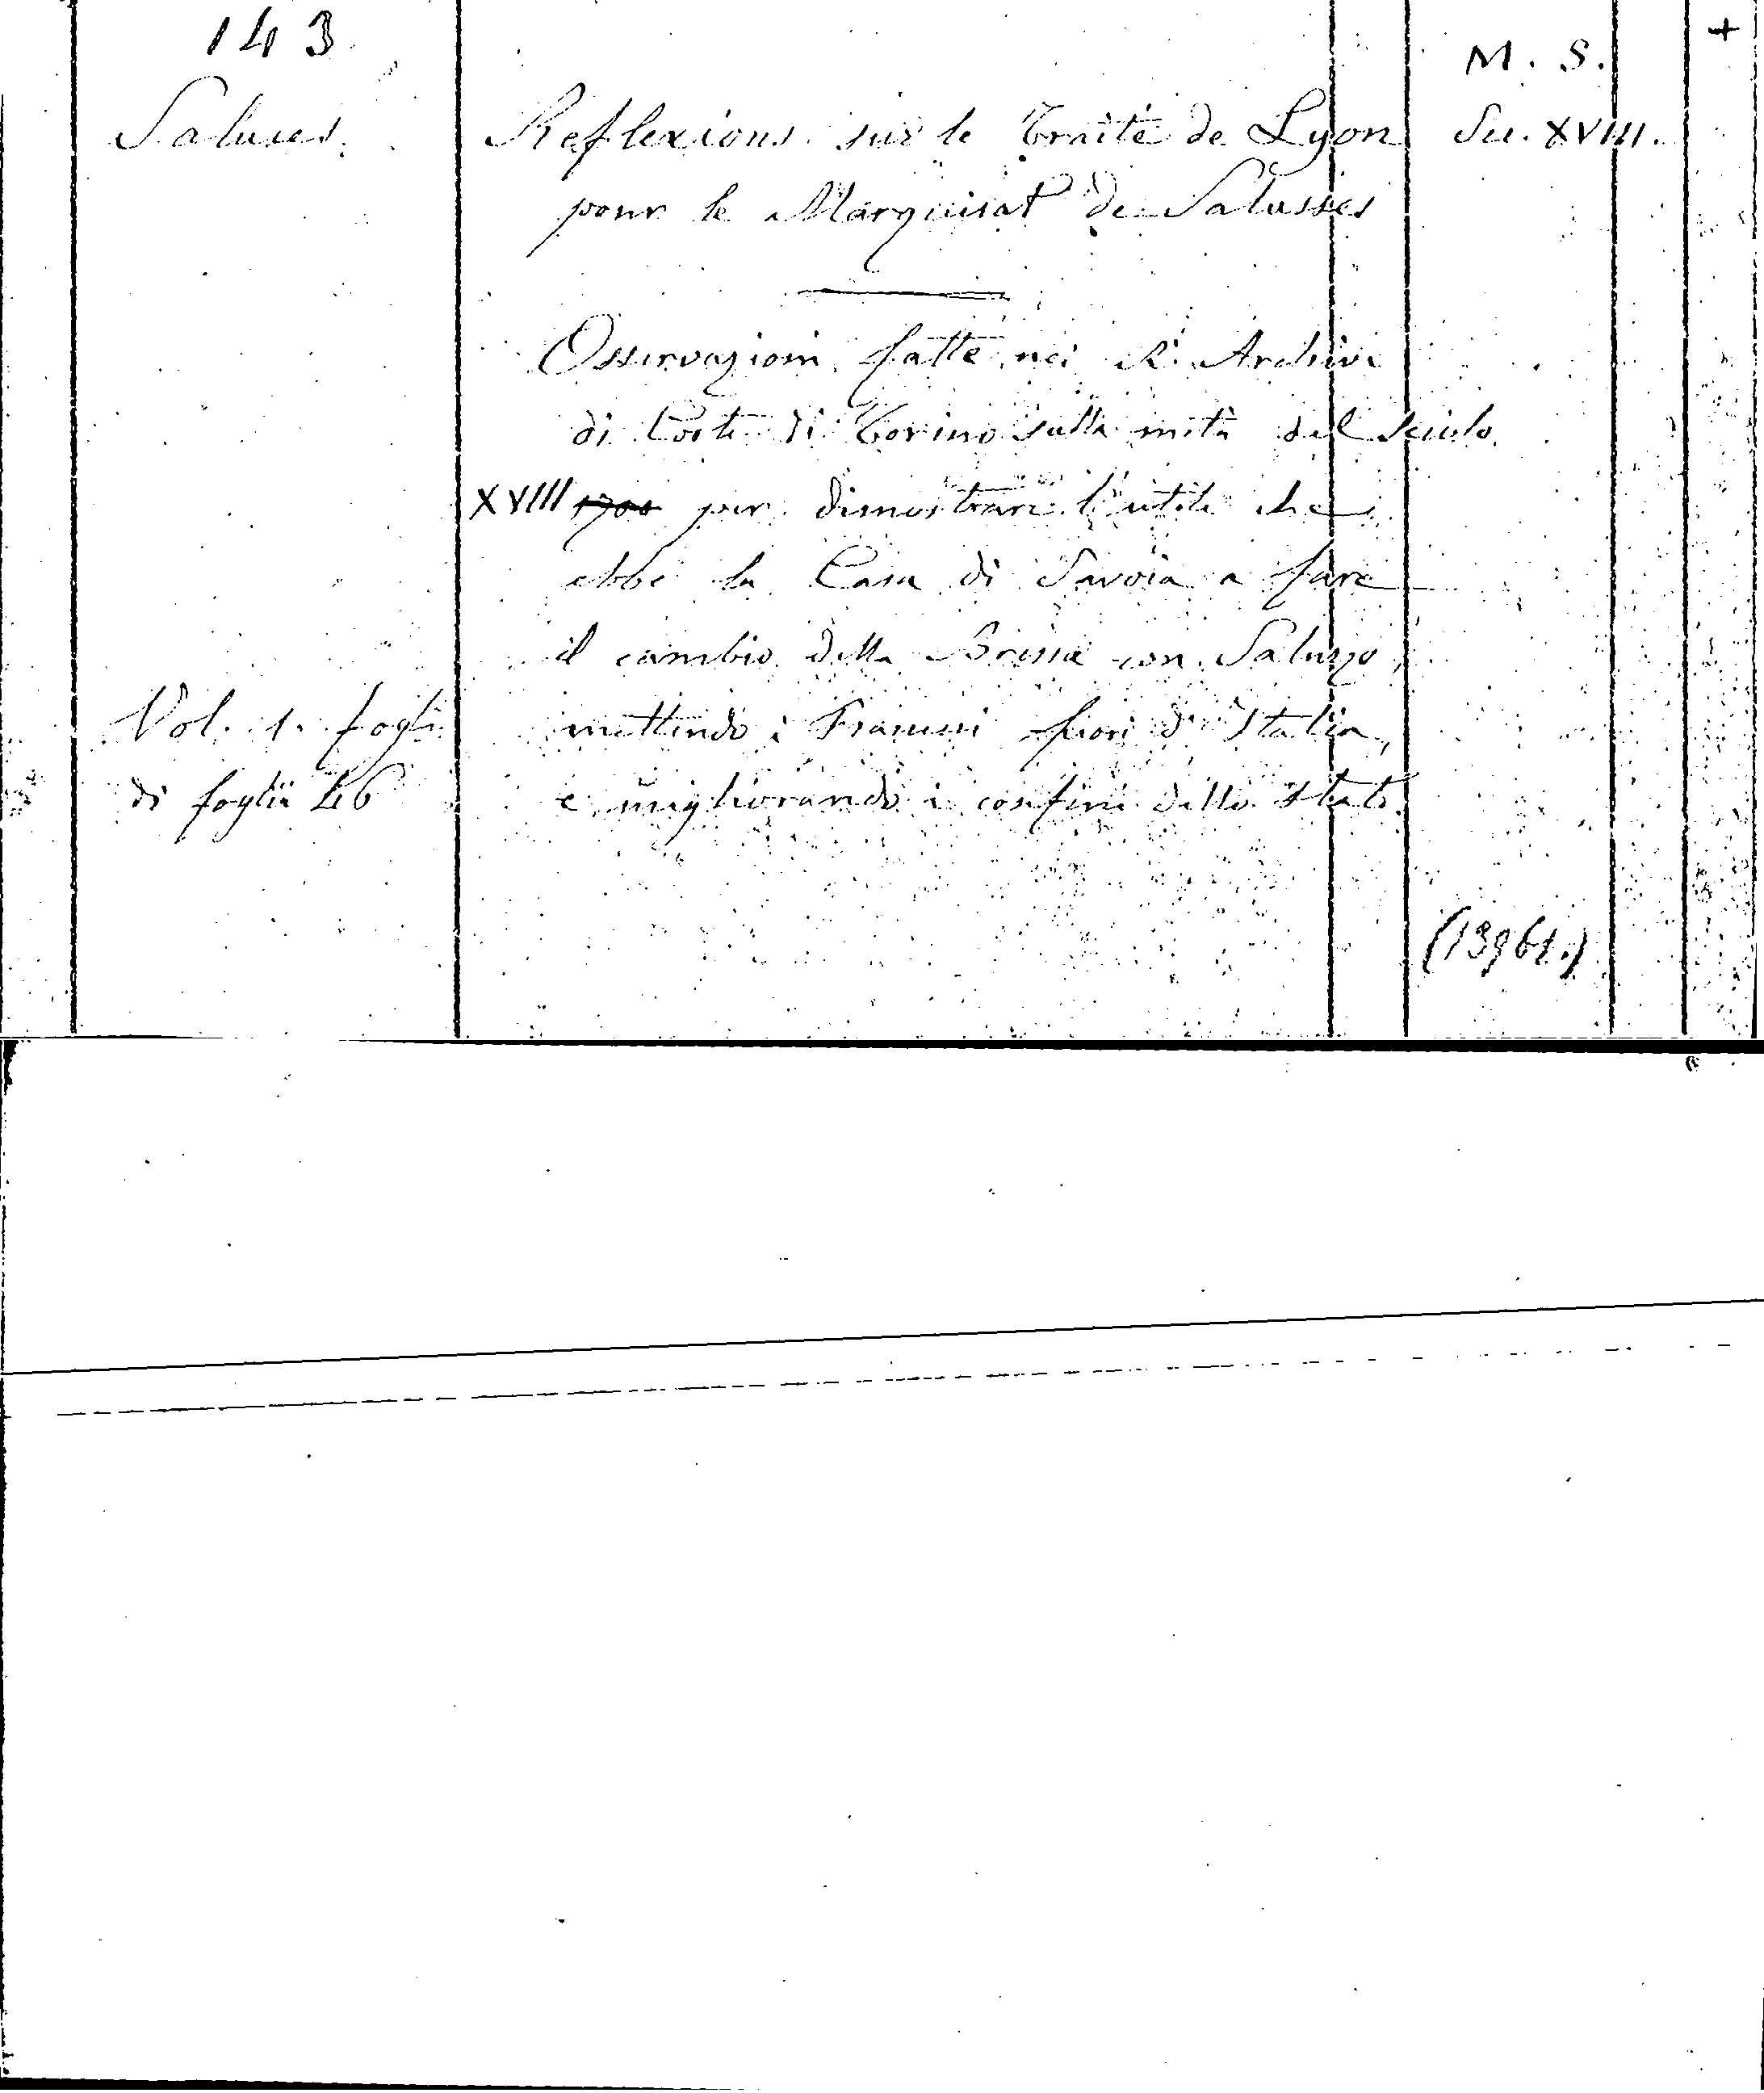 143
M. S.
+
Saluces.
Reflexions sur le Traité de Lyon
Sec. XVIII.
pour le Marquisat de Salusses
Osservazioni fatte nei R. Archivi
di Corte di Torino sulla metà del Secolo
XVIII 1700 per dimostrare l'utile che
ebbe la Casa di Savoia a fare
il cambio della Bressa con Saluzzo,
Vol. 1. fogl.
mettendo i Francesi fuori d'Italia,
di foglii 46
e migliorando i confini dello Stato.
(13961.)